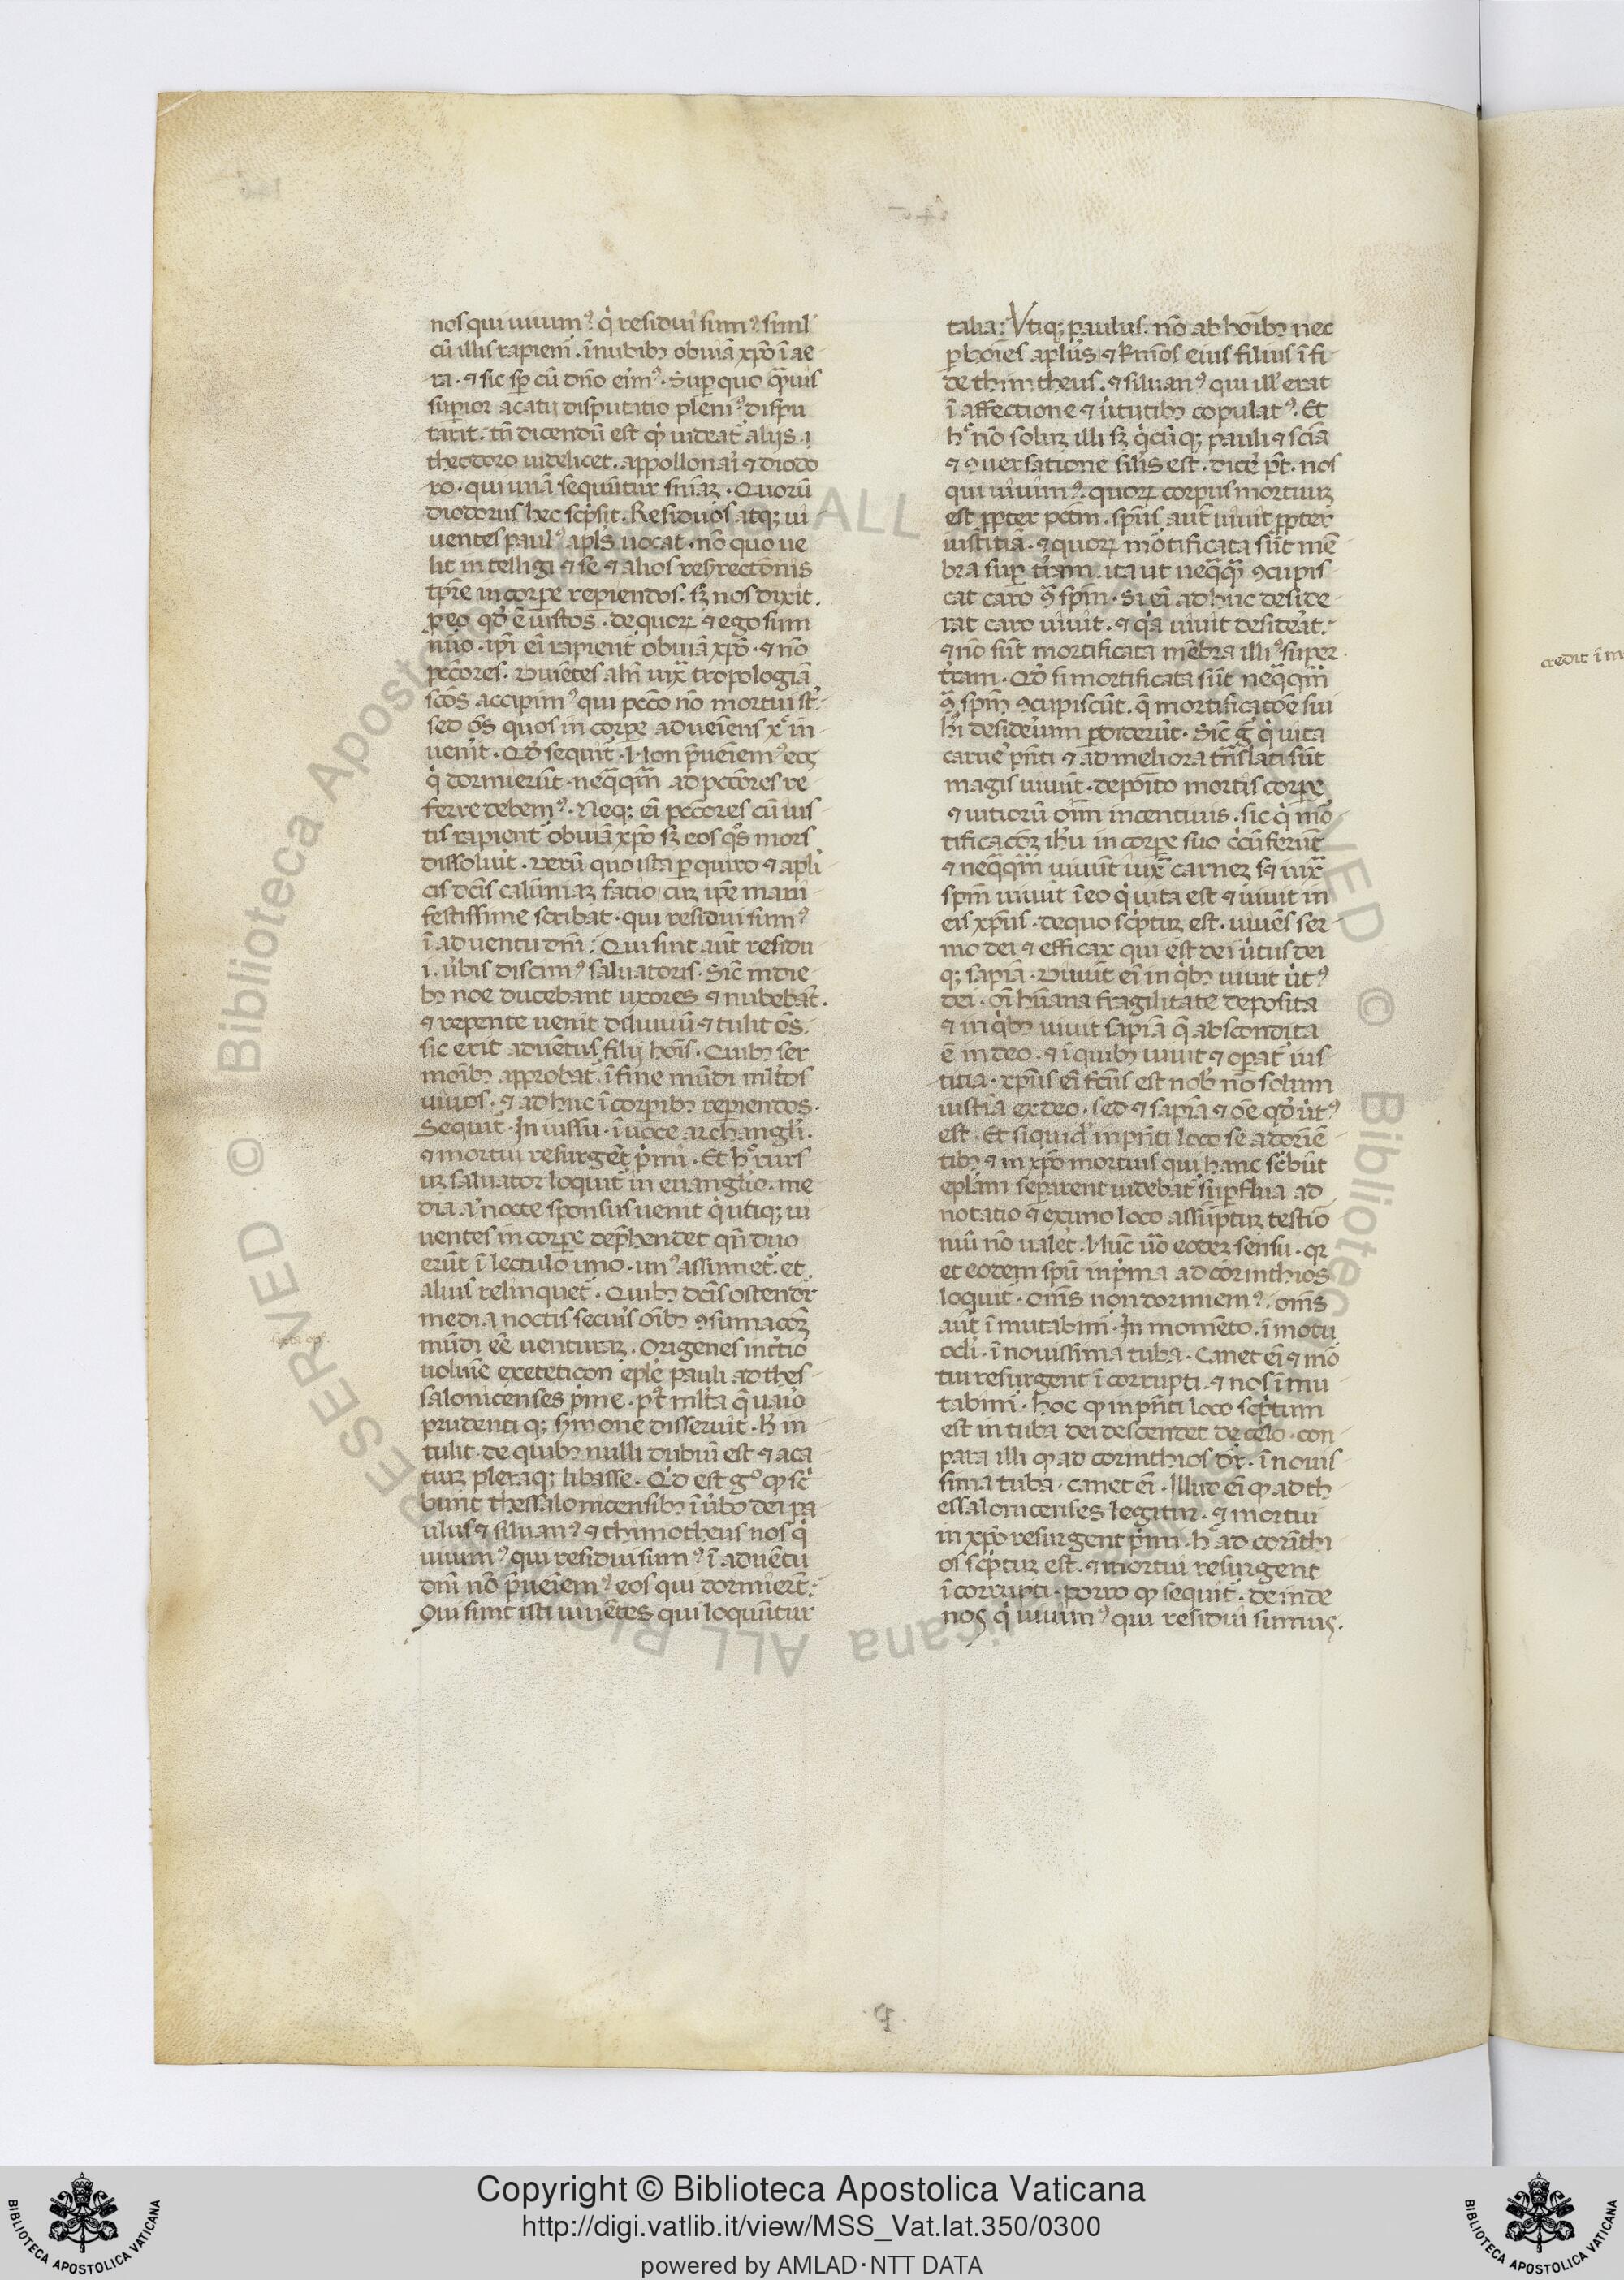 nos qui uiuim⁹ q̇ residui sum⁹ simĺ
cū illis rapiem̄ . ī nubibꝫ obuiā xp̄o ī ae
ra . ⁊ sic sꝑ cū dn̄o erim⁹ . Suꝑ quo q̄̄uis
suꝑior acatij disputatio pleni⁹ dispu
tarit . tn̄ dicendū est qꝙ uideat̄ alijs .
theodoro uidelicet . appollonaı̇ ⁊ diodo
ro . qui unā sequūtur sn̄iaꝫ . Quorū
diodorus hec scp̄sit . Residuos atqꝫ ui
uentes paul⁹ apl̄s uocat . nō quo ue
lit intelligi ⁊ se ⁊ alios resurrectōnis
tp̄re in corꝑe reꝑiendos . sꝫ nos dixit .
ꝑ eo qd̓ ē iustos . de quoꝝ ⁊ ego sum
nu̇o . ip̄i eı̄ rapient̄ obuiā xp̄o . ⁊ nō
pc̄c̄ores . Viuētes
scōs accipim⁹ qui pcc̄o nō mortui sūt
sed oēs quos in corꝑe adueniens xc̄ in
uenit . Qd̓ sequit̄ . Non p̄ueniem⁹ eos
q̇ dormierūt . neq̄q̄m̄ ad pcc̄ores re
ferre debem⁹ . Neqꝫ eı̄ pcc̄ores cū ius
tis rapient̄ obuiā xp̄o sꝫ eos q̄s mors
dissoluit . Verū quo ista ꝑquiro ⁊ apl̄i
cis dc̄is calūniaꝫ facio cuꝫ ip̄e mani
festissime scribat . qui residui sum⁹
ī aduentu dn̄i . Qui sint aūt residu
i . ūbis discim⁹ saluatoris . Sic̄ in die
bꝫ noe ducebant uxores ⁊ nubebāt .
⁊ repente uenit diluuiū ⁊ tulit oēs .
sic erit aduētus filij hoīs . Quibꝫ ser
moībꝫ approbat̄ . ī fine mūdi ml̄tos
uiuos . ⁊ adhuc ī corꝑibꝫ reꝑiendos .
Sequit̄ . In iussu . ī uoce archangl̄i .
⁊ mortui resurgēt p̄mi . Et h̊ rurs
uꝫ saluator loquit̄ in euangl̄io . me
dia ā nocte sponsus uenit q̇ utiqꝫ ui
uentes in corꝑe dep̄hendet qn̄ duo
erūt ī lectulo uno . un⁹ assumet̄ . et
alius relinquet̄ . Quibꝫ dc̄is ostendr̄
media noctis securis oībꝫ ꝯsumacōꝫ
mūdi eē uenturaꝫ . Origenes in t̄tio
uolumīe exeteticon epl̄e pauli ad thes
salonicenses p̄me . pꝰt ml̄ta q̄ uaı̇o
prudentiqꝫ s̄mone disseruit . h̄ in
tulit . de quibꝫ nulli dubiū est ⁊ aca
tiuꝫ pleraqꝫ libasse . Qd̓ est gͦ qꝙ sc̄
bunt thessalonicensibꝫ ī ūbo dei pa
ulus ⁊ siluan⁹ ⁊ thimotheus nos q̇
uiuim⁹ qui residui sum⁹ ī aduētu
dn̄i nō p̄ueniem⁹ eos qui dormierūt .
Qui sunt isti uiuētes qui loquūtur
talia : Vtiqꝫ paulus . nō ab hoībꝫ nec
ꝑ hoīes apl̄us ⁊ kr̄mos eius filius ī fi
de thimtheus . ⁊ siluan⁹ qui ill̓ erat
ī affectione ⁊ ūtutibꝫ copulat⁹ . Et
h̊ nō soluꝫ illi sꝫ q̇cūqꝫ pauli ⁊ scīa
⁊ ꝯuersatione sil̄is est . dice̓ pt̄ . nos
qui uiuim⁹ . quoꝝ corpus mortuuꝫ
est ꝓpter pcc̄m . spūs aūt uiuit ꝓpter
iustitiā . ⁊ quoꝝ mōtificata sūt mē
bra suꝑ tr̄am . ita ut neq̄q̄ ꝯcupis
cat caro ꝯ̄ spm̄ . Si eı̄ adhuc deside
rat caro uiuit . ⁊ q̇a uiuit desiderat .
⁊ nō sūt mortificata mēbra illi⁹ super
tr̄am . Qd̓ si mortificata sūt neq̄qm̄
ꝯ̄ spm̄ ꝯcupiscūt . q̄ mortificatōe sui
hı̄ desideı̇um ꝑdiderūt . Sic̄ g̊ q̇ uita
carue̓ pn̄ti ⁊ ad meliora tn̄slati sūt
magis uiuūt . depoīto mortis corꝑe
⁊ uitiorū oīm incentiuis . sic q̇ mō
tificacōꝫ ihū in corꝑe suo cc̄ūferūt
⁊ neq̄qm̄ uiuūt iux̄ carneꝫ sꝫ iux̄
spm̄ uiuūt ī eo q̇ uita est ⁊ uiuit in
eis xp̄us . de quo sc̄ptuꝫ est . uiuēs ser
mo dei ⁊ efficax qui est dei ūtus dei
qꝫ sapīa . Viuūt eı̄ in q̇bꝫ uiuit ūt⁹
dei . oı̄ hūana fragilitate deposita
⁊ in q̇bꝫ uiuit sapīa q̄ abscondita
ē in deo . ⁊ ī quibꝫ uiuit ⁊ oꝑat̄ ius
titia . xp̄us eı̄ fc̄us est nob̄ nō solum
iustīa ex deo . sed ⁊ sapīa ⁊ oē qd̓ ūt⁹
est . Et siquid̓ in pn̄ti loco se a dormiē
tibꝫ ⁊ in xp̄o mortuis qui hanc sc̄būt
epl̄am seꝑarent uidebat̄ suꝑflua ad
notatio ⁊ ex uno loco assūptuꝫ testīo
niū nō ualet . Nūc ūo eodeꝫ sensu . qꝛ
et eodem spū in p̄ma ad corinthios
loquit̄ . Om̄s non dormiem⁹ . om̄s
aūt ī mutabim̄ . In momēto . ī motu
ocl̄i . ī nouissima tuba . Canet eı̄ ⁊ mō
tui resurgent ī corrupti . ⁊ nos īmu
tabim̄ . hoc qꝙ in pn̄ti loco sc̄ptum
est in tuba dei descendet de celo . con
para illi qꝙ ad corinthios dr̄ . ī nouis
sima tuba . canet eı̄ . Illud eı̄ qꝙ ad th
essalonicenses legitur . ⁊ mortui
in xp̄o resurgent p̄mi . h̊ ad corīthi
os sc̄ptuꝫ est . ⁊ mortui resurgent
ī corrupti . porro qꝙ sequit̄ . deinde
nos q̇ uiuim⁹ qui residui sumus .
credit ī m
Copyright © Biblioteca Apostolica Vaticana
http://digi.vatlib.it/view/MSS_Vat.lat.350/0300
powered by AMLAD·NTT DATA